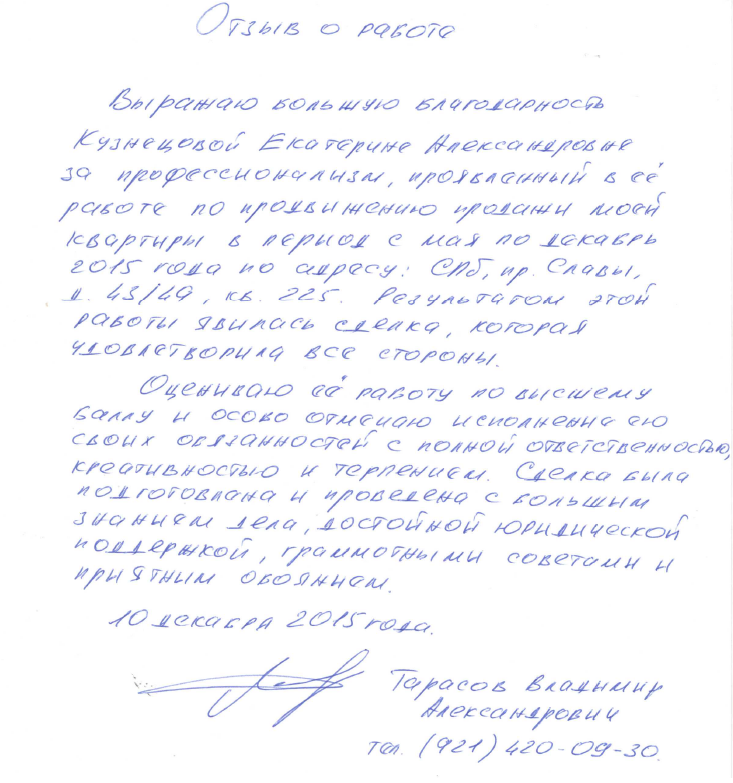 Отзыв о работе
Выражаю большую благодарность
Кузнецовой Екатерине Александровне
за профессионализм, проявленный в её
работе по продвижению продажи моей
квартиры в период с мая по декабрь
2015 года по адресу: СПб, пр. Славы,
д. 43/49, кв. 225. Результатом этой
работы явилась сделка, которая
удовлетворила все стороны.
Оцениваю её работу по высшему
баллу и особо отмечаю исполнение ею
своих обязанностей с полной ответственностью,
креативностью и терпением. Сделка была
подготовлена и проведена с большим
знанием дела, достойной юридической
поддержкой, грамотными советами и
приятным обоянием.
10 декабря 2015 года.
Тарасов Владимир
Александрович
тел. (921) 420-09-30.